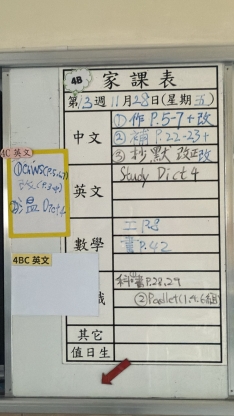 4B 家課表
第13週11月28日(星期五)
中文
①作P.5-7+改
②補P.22-23+
③抄默改正改
4C 英文
②温Dict 4
英文
Study Dict 4
4BC 英文
數學
二P.8
書P.42
科書P.28,29
②Padlet(1,4,6組)
其它
值日生